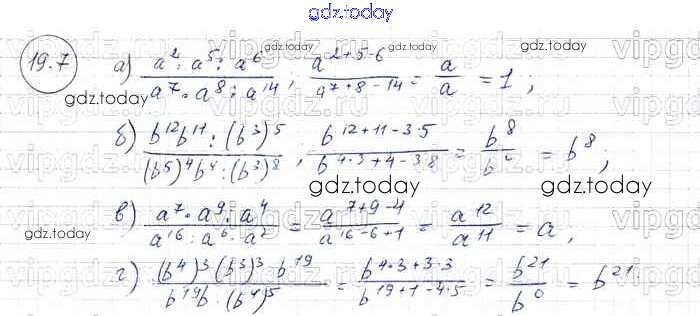 gdz.today
19.7
а) a² · a⁵ : a⁶ / a⁷ · a⁸ : a¹⁴ ; a²⁺⁵⁻⁶ / a⁷⁺⁸⁻¹⁴ = a / a = 1 ;
gdz.today
gdz.today
б) b¹²b¹¹ : (b³)⁵ / (b⁵)⁴b⁴ : (b³)⁸ ; b^(12+11-3·5) / b^(4·3+4-3·8) = b⁸ / b = b⁸ ;
gdz.today
gdz.today
в) a⁷ · a⁹ : a⁴ / a¹⁶ : a⁶ · a² = a⁷⁺⁹⁻⁴ / a¹⁶⁻⁶⁺¹ = a¹² / a¹¹ = a ,
gdz.today
г) (b⁴)³(b³)³ · b¹⁹ / b¹⁹b · (b⁴)⁵ = b^(4·3+3·3) / b^(19+1-4·5) = b²¹ / b⁰ = b²¹
gdz.today